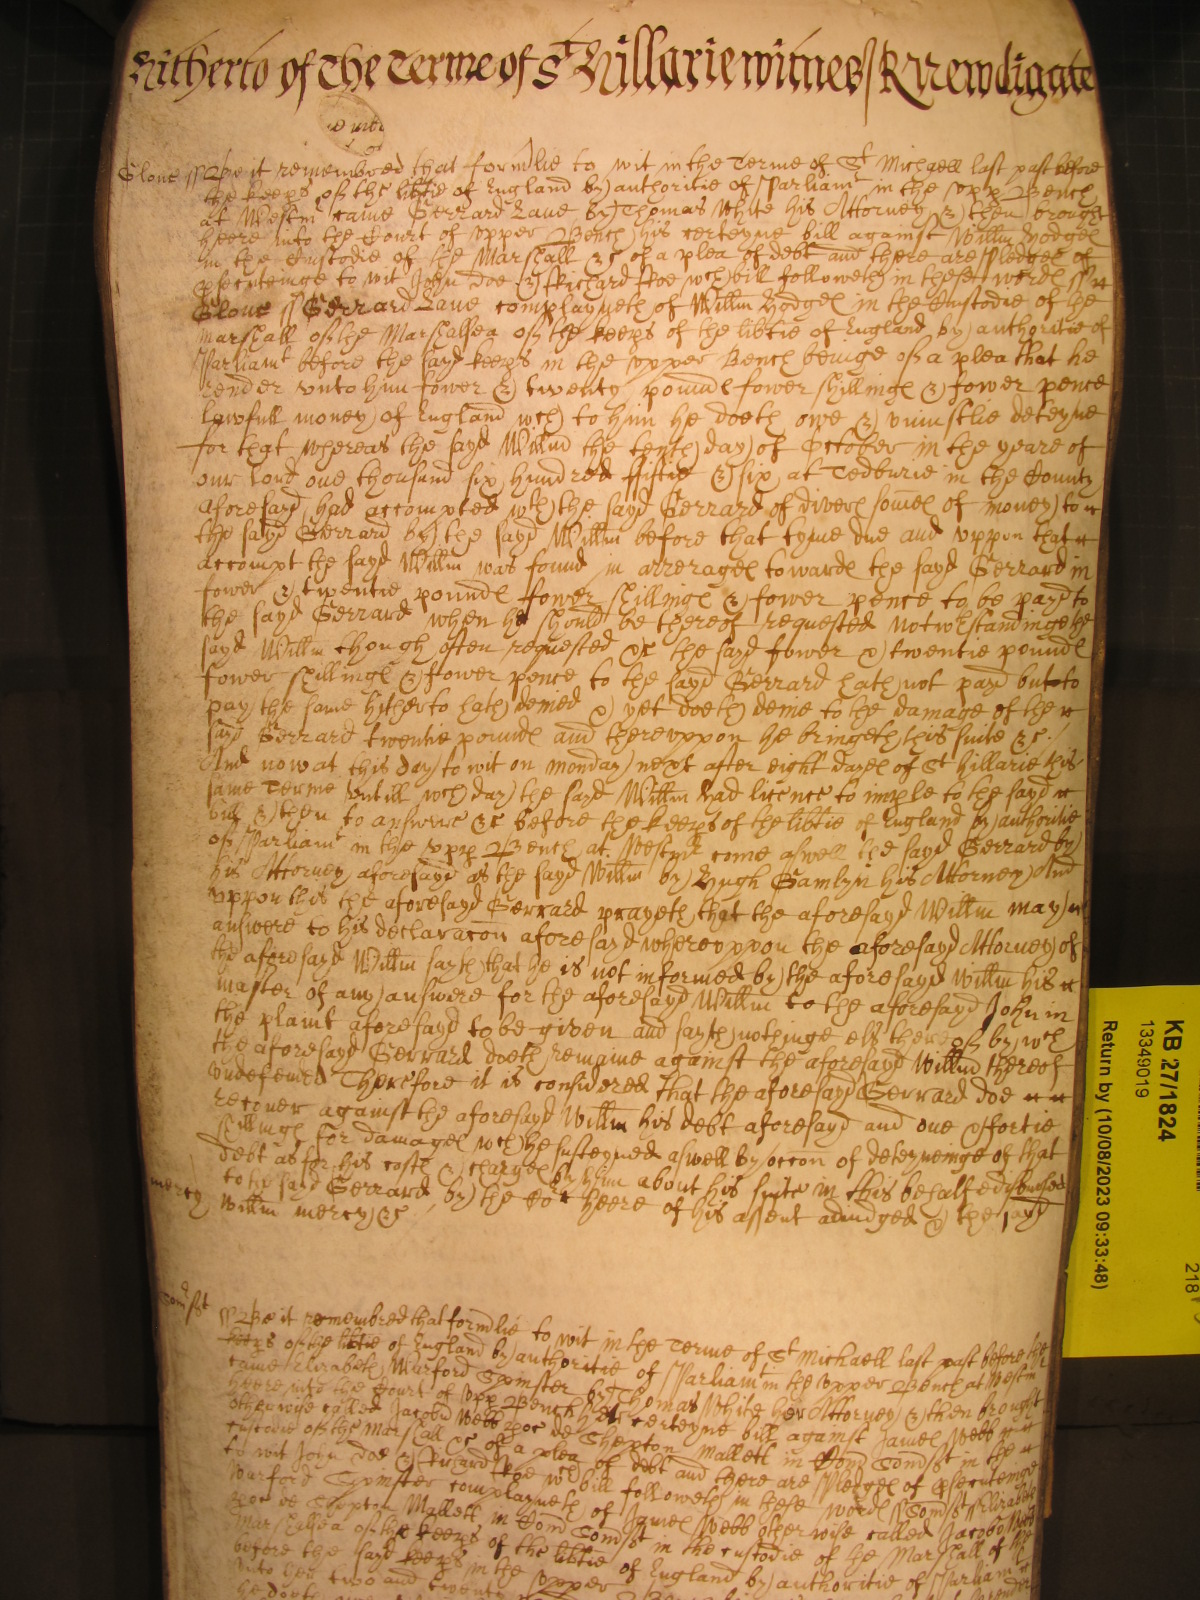 Hitherto of The Terme of St Hillarie witnes / R Newdigate
Glouc ss Be it remembred that formlie to wit in the Terme of St Michaell last past before
the keeps of the libtie of England by authoritie of Parliamt in the upp Bench
at Westmr came Gerrard Lane by Thomas White his Attorney & then brought
heere into the Court of upper Bench his certeyne bill against Willm Hodges
in the Custodie of the Marshall &c of a plea of debt and there are Pledges of
psecuteinge to wit John Doe & Richard Roe wch bill followeth in these words ss
Glouc ss Gerrard Lane complayneth of Willm Hodges in the Custodie of the
Marshall of the Marshalsea of the keeps of the libtie of England by authoritie of
Parliamt before the sayd keeps in the upper Bench beinge of a plea that he
render unto him fower & twenty pounds fower shillings & fower pence
lawfull money of England wch to him he doeth owe & uniustlie deteyne
for that whereas the sayd Willm the tenth day of October in the yeare of
our Lord one thousand six hundred fiftie & six at Tedburie in the County
aforesayd had accompted wth the sayd Gerrard of divers somes of money to
the sayd Gerrard by the sayd Willm before that tyme due and uppon that
accompt the sayd Willm was found in arrerages towards the sayd Gerrard in
fower & twentie pounds fower shillings & fower pence to be payd to
the sayd Gerrard when he should be thereof requested notwthstandinge the
sayd Willm though often requested &c the sayd fower & twentie pounds
fower shillings & fower pence to the sayd Gerrard hath not payd but to
pay the same hitherto hath denied & yet doeth denie to the damage of the
sayd Gerrard twentie pounds and thereuppon he bringeth his suite &c
And now at this day to wit on monday next after eight dayes of St Hillarie this
same Terme untill wch day the sayd Willm had licence to imple to the sayd
bill & then to answere &c before the keeps of the libtie of England by authoritie
of Parliamt in the upp Bench at Westmr come aswell the sayd Gerrard by
his Attorney aforesayd as the sayd Willm by Hugh Hamlyn his Attorney And
uppon this the aforesayd Gerrard prayeth that the aforesayd Willm may
answere to his declaracon aforesayd whereuppon the aforesayd Attorney of
the aforesayd Willm sayth that he is not informed by the aforesayd Willm his
master of any answere for the aforesayd Willm to the aforesayd John in
the plaint aforesayd to be given and sayth nothinge els thereof by wch
the aforesayd Gerrard doeth remaine against the aforesayd Willm thereof
undefended Therefore it is considered that the aforesayd Gerrard doe
recover against the aforesayd Willm his debt aforesayd and one & fortie
shillings for damages wch he susteyned aswell by occon of deteyneinge of that
debt as for his costs & charges by him about his suite in this behalfe disbursed
to the sayd Gerrard by the Cort heere of his assent adiudged & the sayd
mercy Willm mercy &c
Somsst ss Be it remembred that formlie to wit in the Terme of St Michaell last past before the
keeps of the libtie of England by authoritie of Parliamt in the upper Bench at Westm
came Elizabeth Warford Spinster by Thomas White her Attorney & then brought
heere into the Court of upp Bench her certeyne bill against James Webb
otherwise called Jacobu Webb de Shepton Mallett in Com Somsst in the
custodie of the Marshall &c of a plea of debt and there are Pledges of psecuteinge
to wit John Doe & Richard Roe wch bill followeth in these words ss Somsst ss Elizabeth
Warford Spinster complayneth of James Webb otherwise called Jacobo Webb
de Shepton Mallett in Com Somsst in the custodie of the Marshall of the
Marshalsea of the keeps of the libtie of England by authoritie of Parliamt
before the sayd keeps in the upper
unto her two and twenty
KB 27/1824
13349019
Return by (10/08/2023 09:33:48)